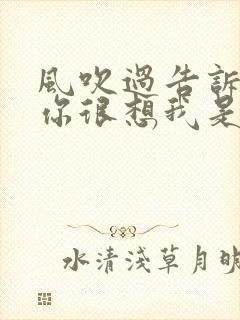 風吹過告訴
你很想我是
水清淺草月明